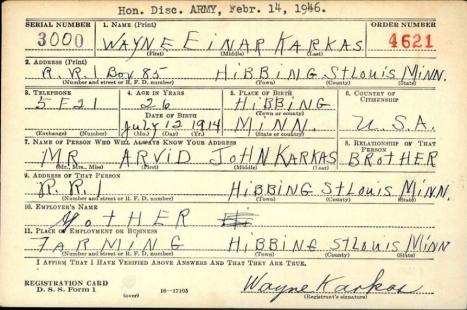 Hon. Disc. ARMY, Febr. 14, 1946.
SERIAL NUMBER 1. NAME (Print) ORDER NUMBER
3000 WAYNE EINAR KARKAS 4621
(First) (Middle) (Last)
2. ADDRESS (Print)
R.R.1 Box 85 HIBBING St LOUIS MINN.
(Number and street or R. F. D. number) (Town) (County) (State)
3. TELEPHONE 4. AGE IN YEARS 5. PLACE OF BIRTH 6. COUNTRY OF CITIZENSHIP
5F21 26 HIBBING
DATE OF BIRTH (Town or county)
July 12 1914 MINN. U.S.A.
(Exchange) (Number) (Mo.) (Day) (Yr.) (State or country)
7. NAME OF PERSON WHO WILL ALWAYS KNOW YOUR ADDRESS 8. RELATIONSHIP OF THAT PERSON
MR ARVID JOHN KARKAS BROTHER
(Mr., Mrs., Miss) (First) (Middle) (Last)
9. ADDRESS OF THAT PERSON
R.R.1 HIBBING St LOUIS MINN.
(Number and street or R. F. D. number) (Town) (County) (State)
10. EMPLOYER'S NAME
MOTHER
11. PLACE OF EMPLOYMENT OR BUSINESS
FARMING HIBBING St LOUIS MINN
(Number and street or R. F. D. number) (Town) (County) (State)
I AFFIRM THAT I HAVE VERIFIED ABOVE ANSWERS AND THAT THEY ARE TRUE.
REGISTRATION CARD
D. S. S. Form 1 (over) 16—17105 Wayne Karkas
(Registrant's signature)